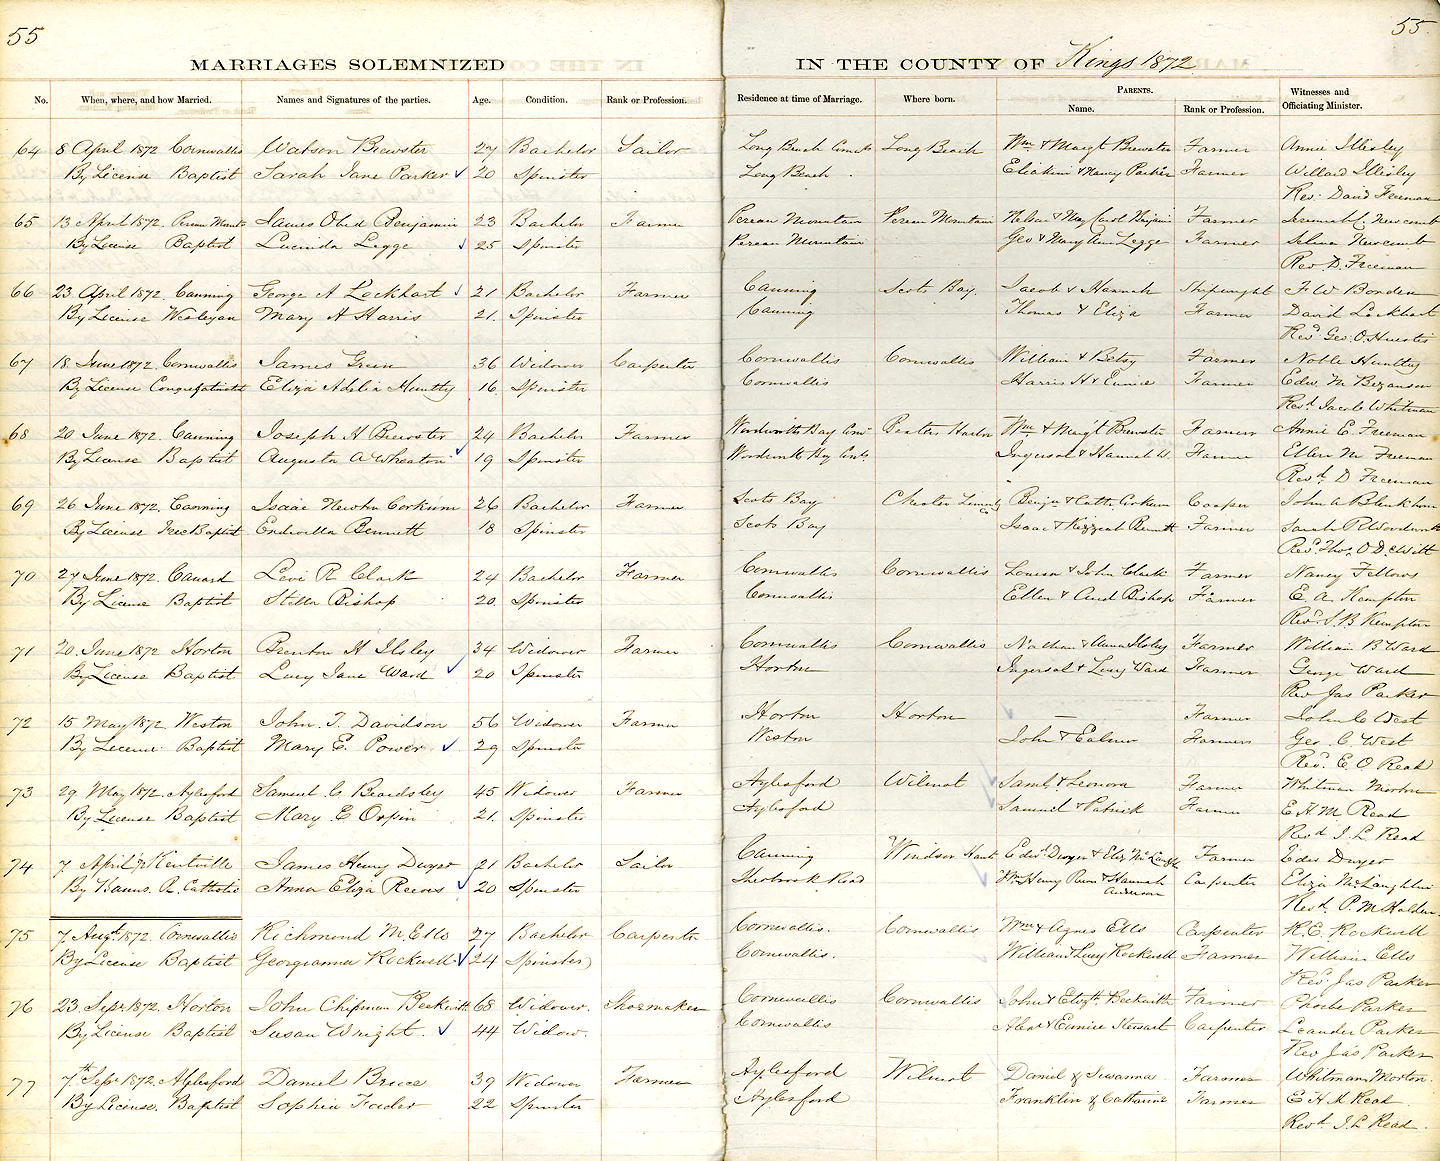 55
55
MARRIAGES SOLEMNIZED
IN THE COUNTY OF Kings 1872
No. When, where, and how Married. Names and Signatures of the parties. Age. Condition. Rank or Profession. Residence at time of Marriage. Where born. PARENTS. Name. Rank or Profession. Witnesses and Officiating Minister.
64 8 April 1872 Cornwallis Watson Brewster 27 Bachelor Sailor Long Beach Long Beach Wm & Margt Brewster Farmer Annie Illsley
By License Baptist Sarah Jane Parker 20 Spinster Long Beach Eliakim & Nancy Parker Farmer Willard Illsley
Rev. David Freeman
65 13 April 1872. James Obed Benjamin 23 Bachelor Farmer Perean Mountain Perean Mountain Farmer Newcomb
By License Baptist Lucinda Legge 25 Spinster Perean Mountain Geo & Mary Ann Legge Farmer Newcomb
Revd D. Freeman
66 23 April 1872. Canning George A Lockhart 21 Bachelor Farmer Canning Scots Bay. Jacob & Hannah Shipwright F W Borden
By License Wesleyan Mary A Harris 21. Spinster Canning Thomas & Eliza Farmer David Lockhart
Revd Geo. O. Huestis
67 18 June 1872. Cornwallis James Green 36 Widower Carpenter Cornwallis Cornwallis William & Betsy Farmer Noble Huntley
By License Congregationalist Eliza Adelia Huntley 16 Spinster Cornwallis Harris H & Eunice Farmer Edw. M Bezanson
Revd Jacob Whitman
68 20 June 1872. Canning Joseph H Brewster 24 Bachelor Farmer Baxters Harbor Wm & Margt Brewster Farmer Annie E. Freeman
By License Baptist Augusta A Wheaton 19 Spinster Ingersol & Hannah W. Farmer Ellen M Freeman
Revd D Freeman
69 26 June 1872. Canning Isaac Newton Corkum 26 Bachelor Farmer Scots Bay Chester Benjn & Cath Corkum Cooper John A Blenkhorn
By License Free Baptist Bennett 18 Spinster Scots Bay Isaac & Bennett Farmer Sarah R Woodworth
Revd Thos. O DeWitt
70 27 June 1872. Canard Levi R Clark 24 Bachelor Farmer Cornwallis Cornwallis Louisa & John Clark Farmer Nancy Fellows
By License Baptist Stella Bishop 20. Spinster Cornwallis Ellen & And Bishop Farmer E. A. Kempton
Revd S. B Kempton
71 20 June 1872 Horton Brenton H Illsley 34 Widower Farmer Cornwallis Cornwallis Nathan & Anna Illsley Farmer William B Ward
By License Baptist Lucy Jane Ward 20 Spinster Horton Ingersol & Lucy Ward Farmer George Ward
Rev Jas Parker
72 15 May 1872 Weston John T. Davidson 56 Widower Farmer Horton Horton — Farmer John C West
By License Baptist Mary E. Power 29 Spinster Weston John & Farmer Geo. C. West
Revd. E. O. Read
73 29 May 1872. Aylesford Samuel C Beardsley 45 Widower Farmer Aylesford Wilmot Saml & Leonora Farmer Whitman Morton
By License Baptist Mary E Orpin 21. Spinster Aylesford Samuel & Farmer E. H. M. Read
Revd J. L. Read
74 7 April Kentville James Henry Dwyer 21 Bachelor Sailor Canning Windsor Hants Edwd Dwyer & Eliz McLaughlin Farmer Edw Dwyer
By Banns. R. Catholic Anna Eliza Reeves 20 Spinster Sherbrook Road Wm Henry & Hannah Anderson Carpenter Eliza McLaughlin
Revd P. M Holden
75 7 Augt 1872. Cornwallis Richmond M. Ells 27 Bachelor Carpenter Cornwallis. Cornwallis Wm & Agnes Ells Carpenter R. E. Rockwell
By License Baptist Georgianna Rockwell 24 Spinster Cornwallis. William & Lucy Rockwell Farmer William Ells
Rev. Jas Parker
76 23. Sept 1872. Horton John Chipman Beckwith 68 Widower. Shoemaker Cornwallis Cornwallis John & Elizth Beckwith Farmer Phoebe Parker
By License Baptist Susan Wright. 44 Widow. Cornwallis & Eunice Stewart Carpenter Leander Parker
Rev Jas Parker
77 7th Sept 1872. Aylesford Daniel Bruce 39 Widower Farmer Aylesford Wilmot Daniel & Suwanna Farmer Whitman Morton.
By License. Baptist Sophia Fader 22 Spinster Aylesford Franklin & Catharine Farmer E H M Read
Revd J. L Read.